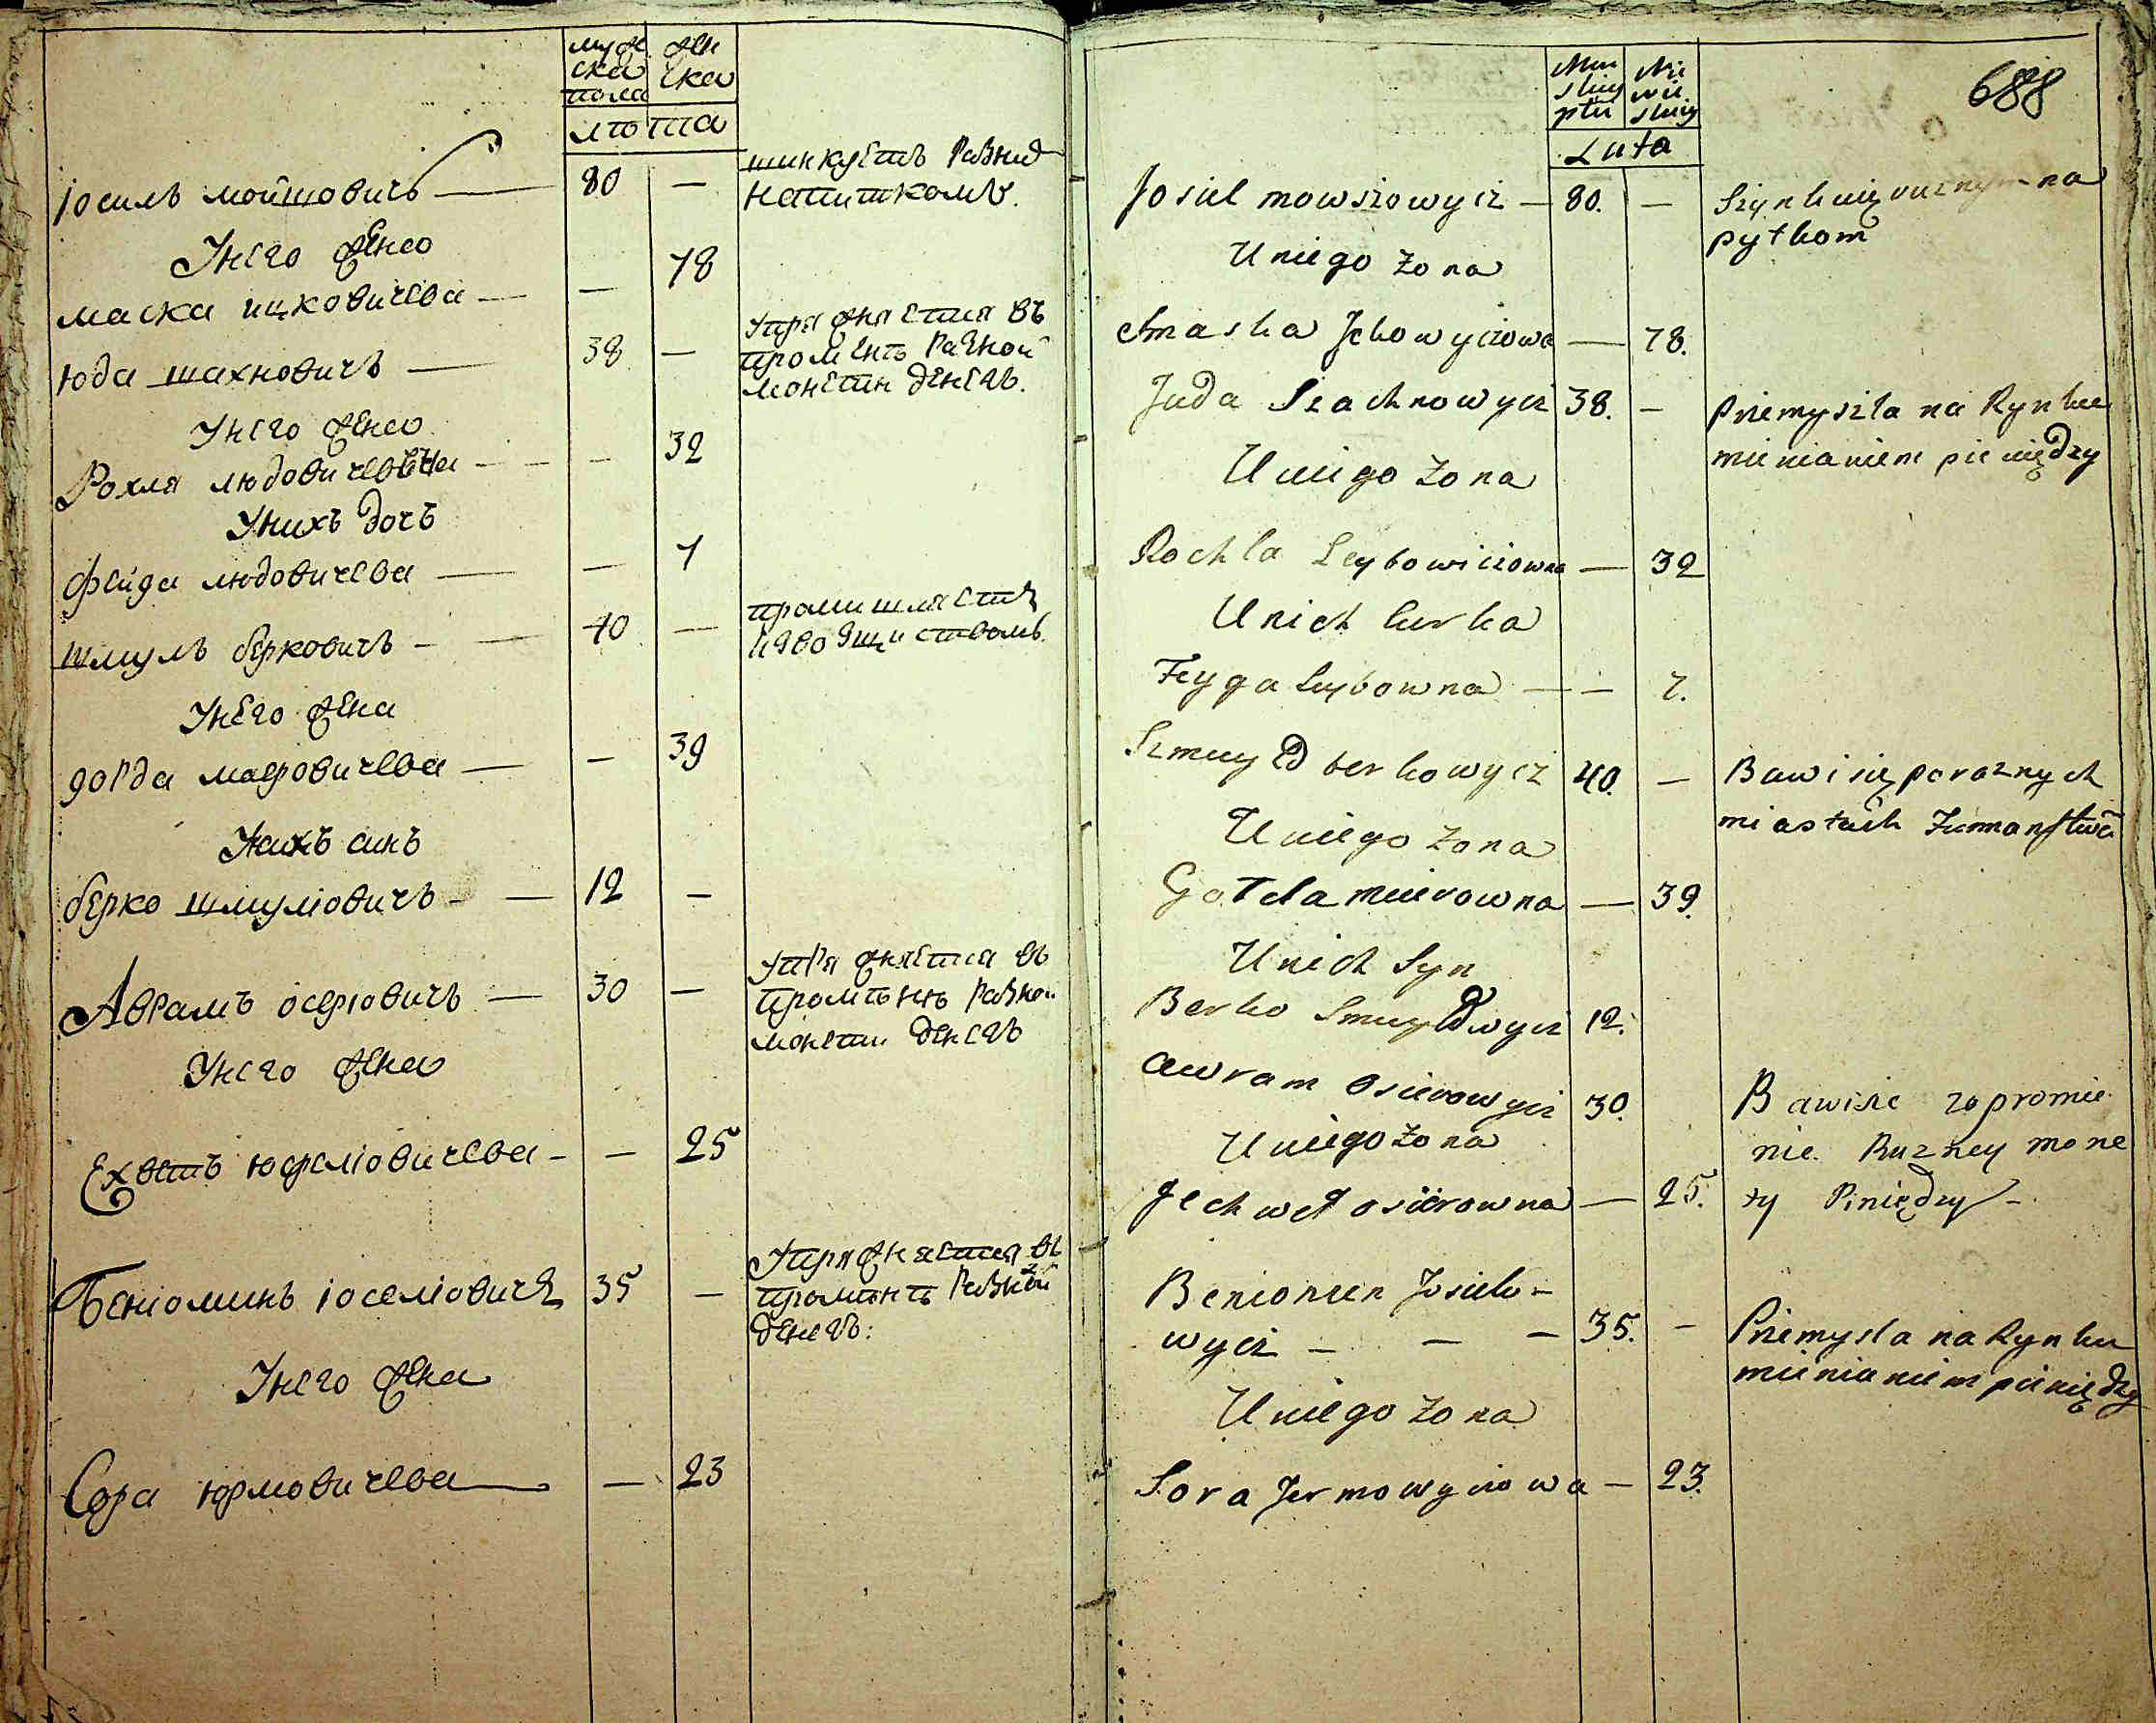 мужска пола
женска
лѣта
іосиль мойшовичъ — 80 —
шинкуетъ разнид
напиткомъ.
Унего жена
маска ицковичева — — 78
юда шахновичъ — 38 —
упражняется въ
промѣнѣ разной
монети денегъ.
Унего жена
Рохля людовичевна — — 32
Унихъ дочъ
фейга людовичева — — 7
шмуль берковичъ — 40 —
промишляетъ
извозщиствомъ
Унего жена
голда маеровичева — — 39
Унихъ синъ
берко шмуліовичъ — 12 —
Аврамъ осеріовичъ — 30 —
упражняется въ
промѣнѣ разной
монети денегъ
Унего жена
Ехветъ юсефіовичева — — 25
Беніоминъ іоселіовичъ 35 —
Упражняется въ
промѣнѣ разной
денегъ:
Унего жена
Сора юрмовичева — — 23
688
Men
skiey
płci
Nie
wie
skiey
Lata
Josiel mowszowycz — 80. —
Szynkuię ruznym na
pytkom
U niego żona
Maska Jckowyczowa — 78.
Juda Szachnowycz 38. —
Przemyszla na Rynku
mienianiem pieniędzy
U niego żona
Rochla Leybowiczowna — 32
U nich curka
Feyga Leybowna — — 7.
Szmuyło berkowycz 40. —
Bawi się po roznych
miastach Furmanstwē
U niego żona
Gotda meierowna — 39.
U nich Syn
Berko Smuyłowycz 12.
Awram Osierowycz 30.
Bawi sie zo promie
nie Ruzney mone
ty Piniędzy —
U niego żona
Jechwet osierowna — 25.
Beniomen Josielo-
wycz — — — 35. —
Przemysla na Rynku
mienianiem pieniędzy
U niego żona
Sora Jermowyczowa — 23.